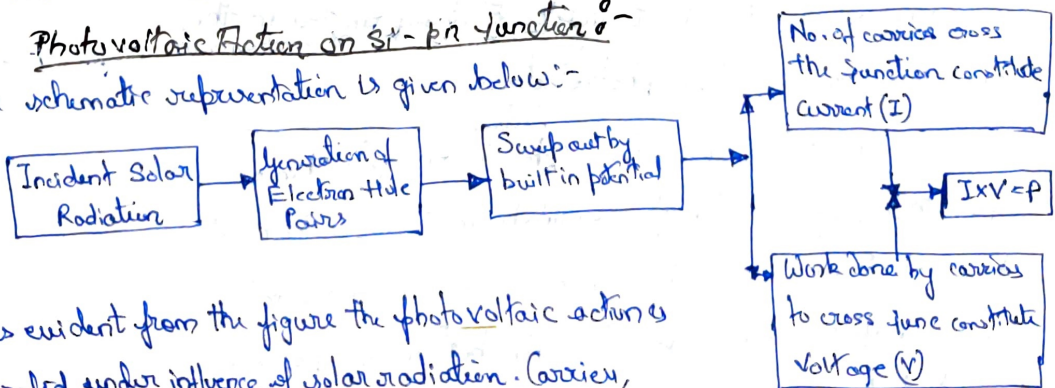 Photovoltaic Action on Si-pn junction :-
schematic representation is given below:-
Incident Solar
Radiation
Generation of
Electron Hole
Pairs
Sweep out by
built in potential
No. of carries cross
the junction constitute
current (I)
I×V=P
Work done by carries
to cross junc constitute
Voltage (V)
evident from the figure the photovoltaic action is
under influence of solar radiation. Carriers,